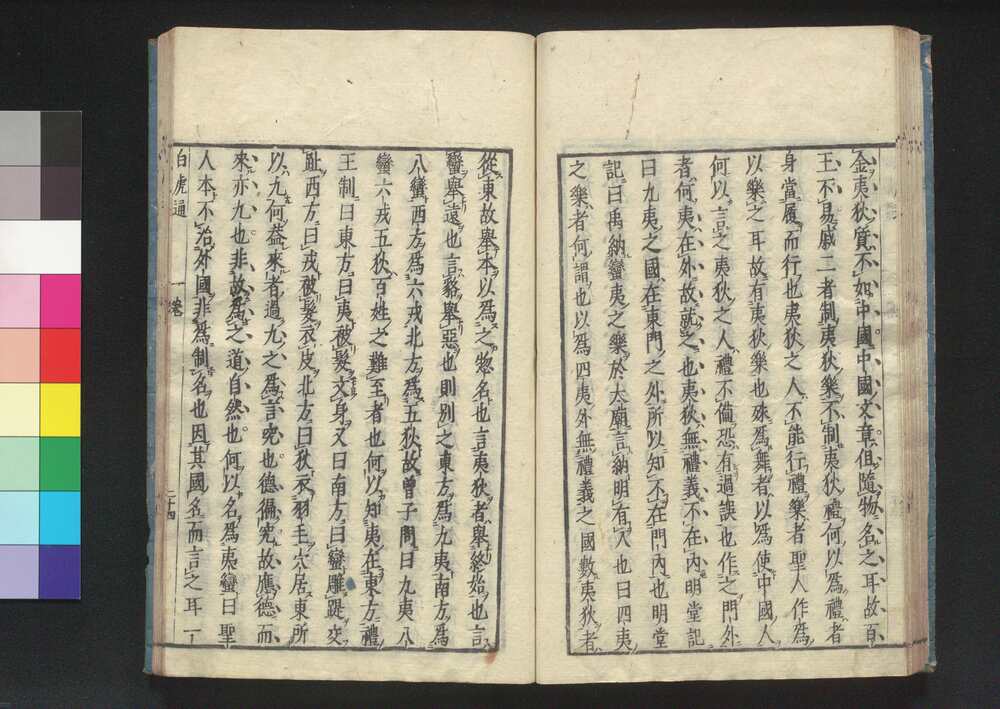 金夷狄質不如中國中國文章但隨物名之耳故百
王不易戚二者制夷狄樂不制夷狄禮何以爲禮者
身當履而行也夷狄之人不能行禮樂者聖人作爲
以樂之耳故有夷狄樂也殊爲舞者以爲使中國人
何以言之夷狄之人禮不備恐有過誤也作之門外
者何夷在外故就之也夷狄無禮義不在內明堂記
曰九夷之國在東門之外所以知不在門內也明堂
記曰禹納蠻夷之樂於太廟言納明有入也曰四夷
之樂者何謂也以爲四夷外無禮義之國數夷狄者
從東故舉本以爲之惣名也言夷狄者舉終始也言
蠻舉遠也言貉舉惡也則別之東方爲九夷南方爲
八蠻西方爲六戎北方爲五狄故曾子問曰九夷八
蠻六戎五狄百姓之難至者也何以知夷在東方禮
王制曰東方曰夷被髮文身又曰南方曰蠻雕題交
趾西方曰戎被髮衣皮北方曰狄衣羽毛穴居東所
以九何益來者過九之爲言究也德徧究故應德而
來亦九也非故爲之道自然也何以名爲夷蠻曰聖
人本不治外國非爲制名也因其國名而言之耳一
白虎通 一卷 二十四